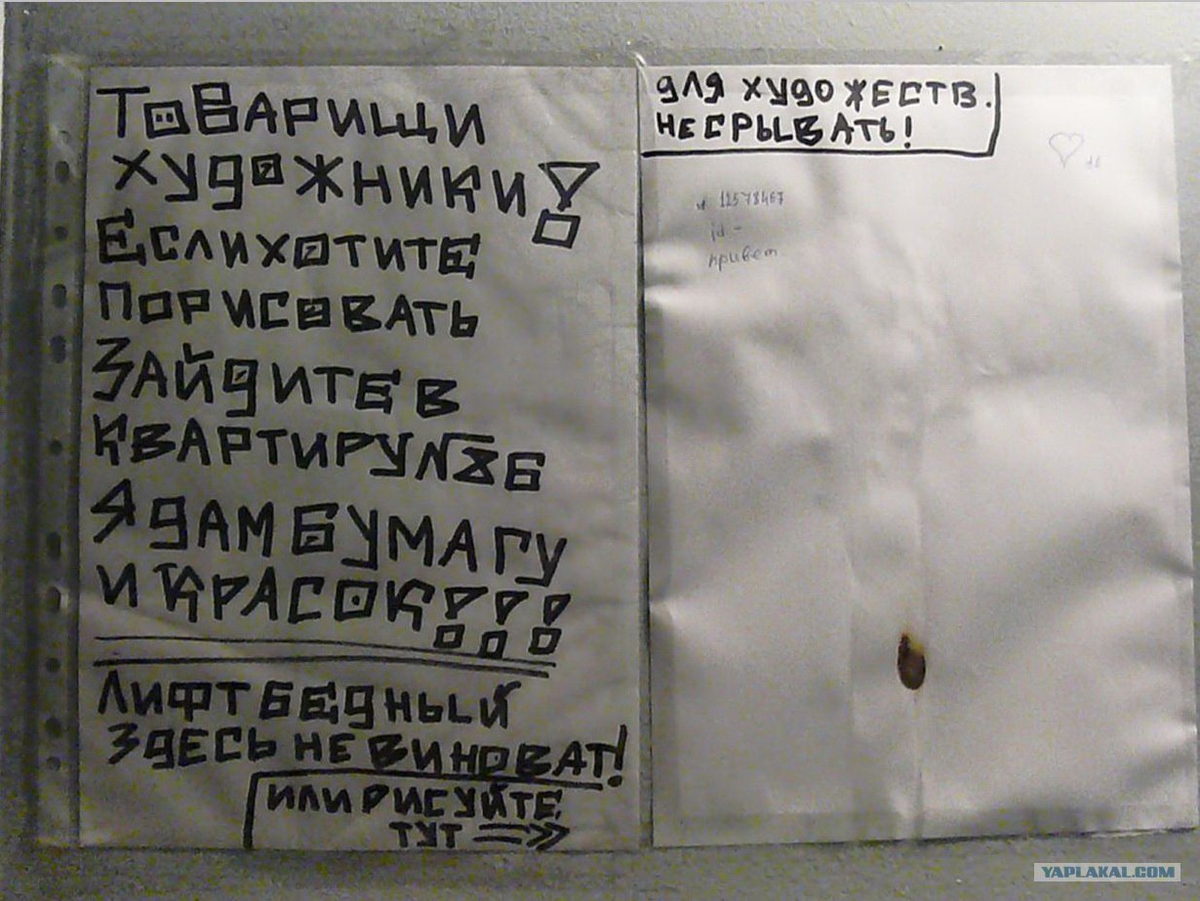 ТОВАРИЩИ
ХУДОЖНИКИ!
ЕСЛИ ХОТИТЕ
ПОРИСОВАТЬ
ЗАЙДИТЕ В
КВАРТИРУ №86
Я ДАМ БУМАГУ
И КРАСОК!!!
ЛИФТ БЕДНЫЙ
ЗДЕСЬ НЕ ВИНОВАТ!
ИЛИ РИСУЙТЕ
ТУТ
ДЛЯ ХУДОЖЕСТВ.
НЕ СРЫВАТЬ!
id -
привет
YAPLAKAL.COM